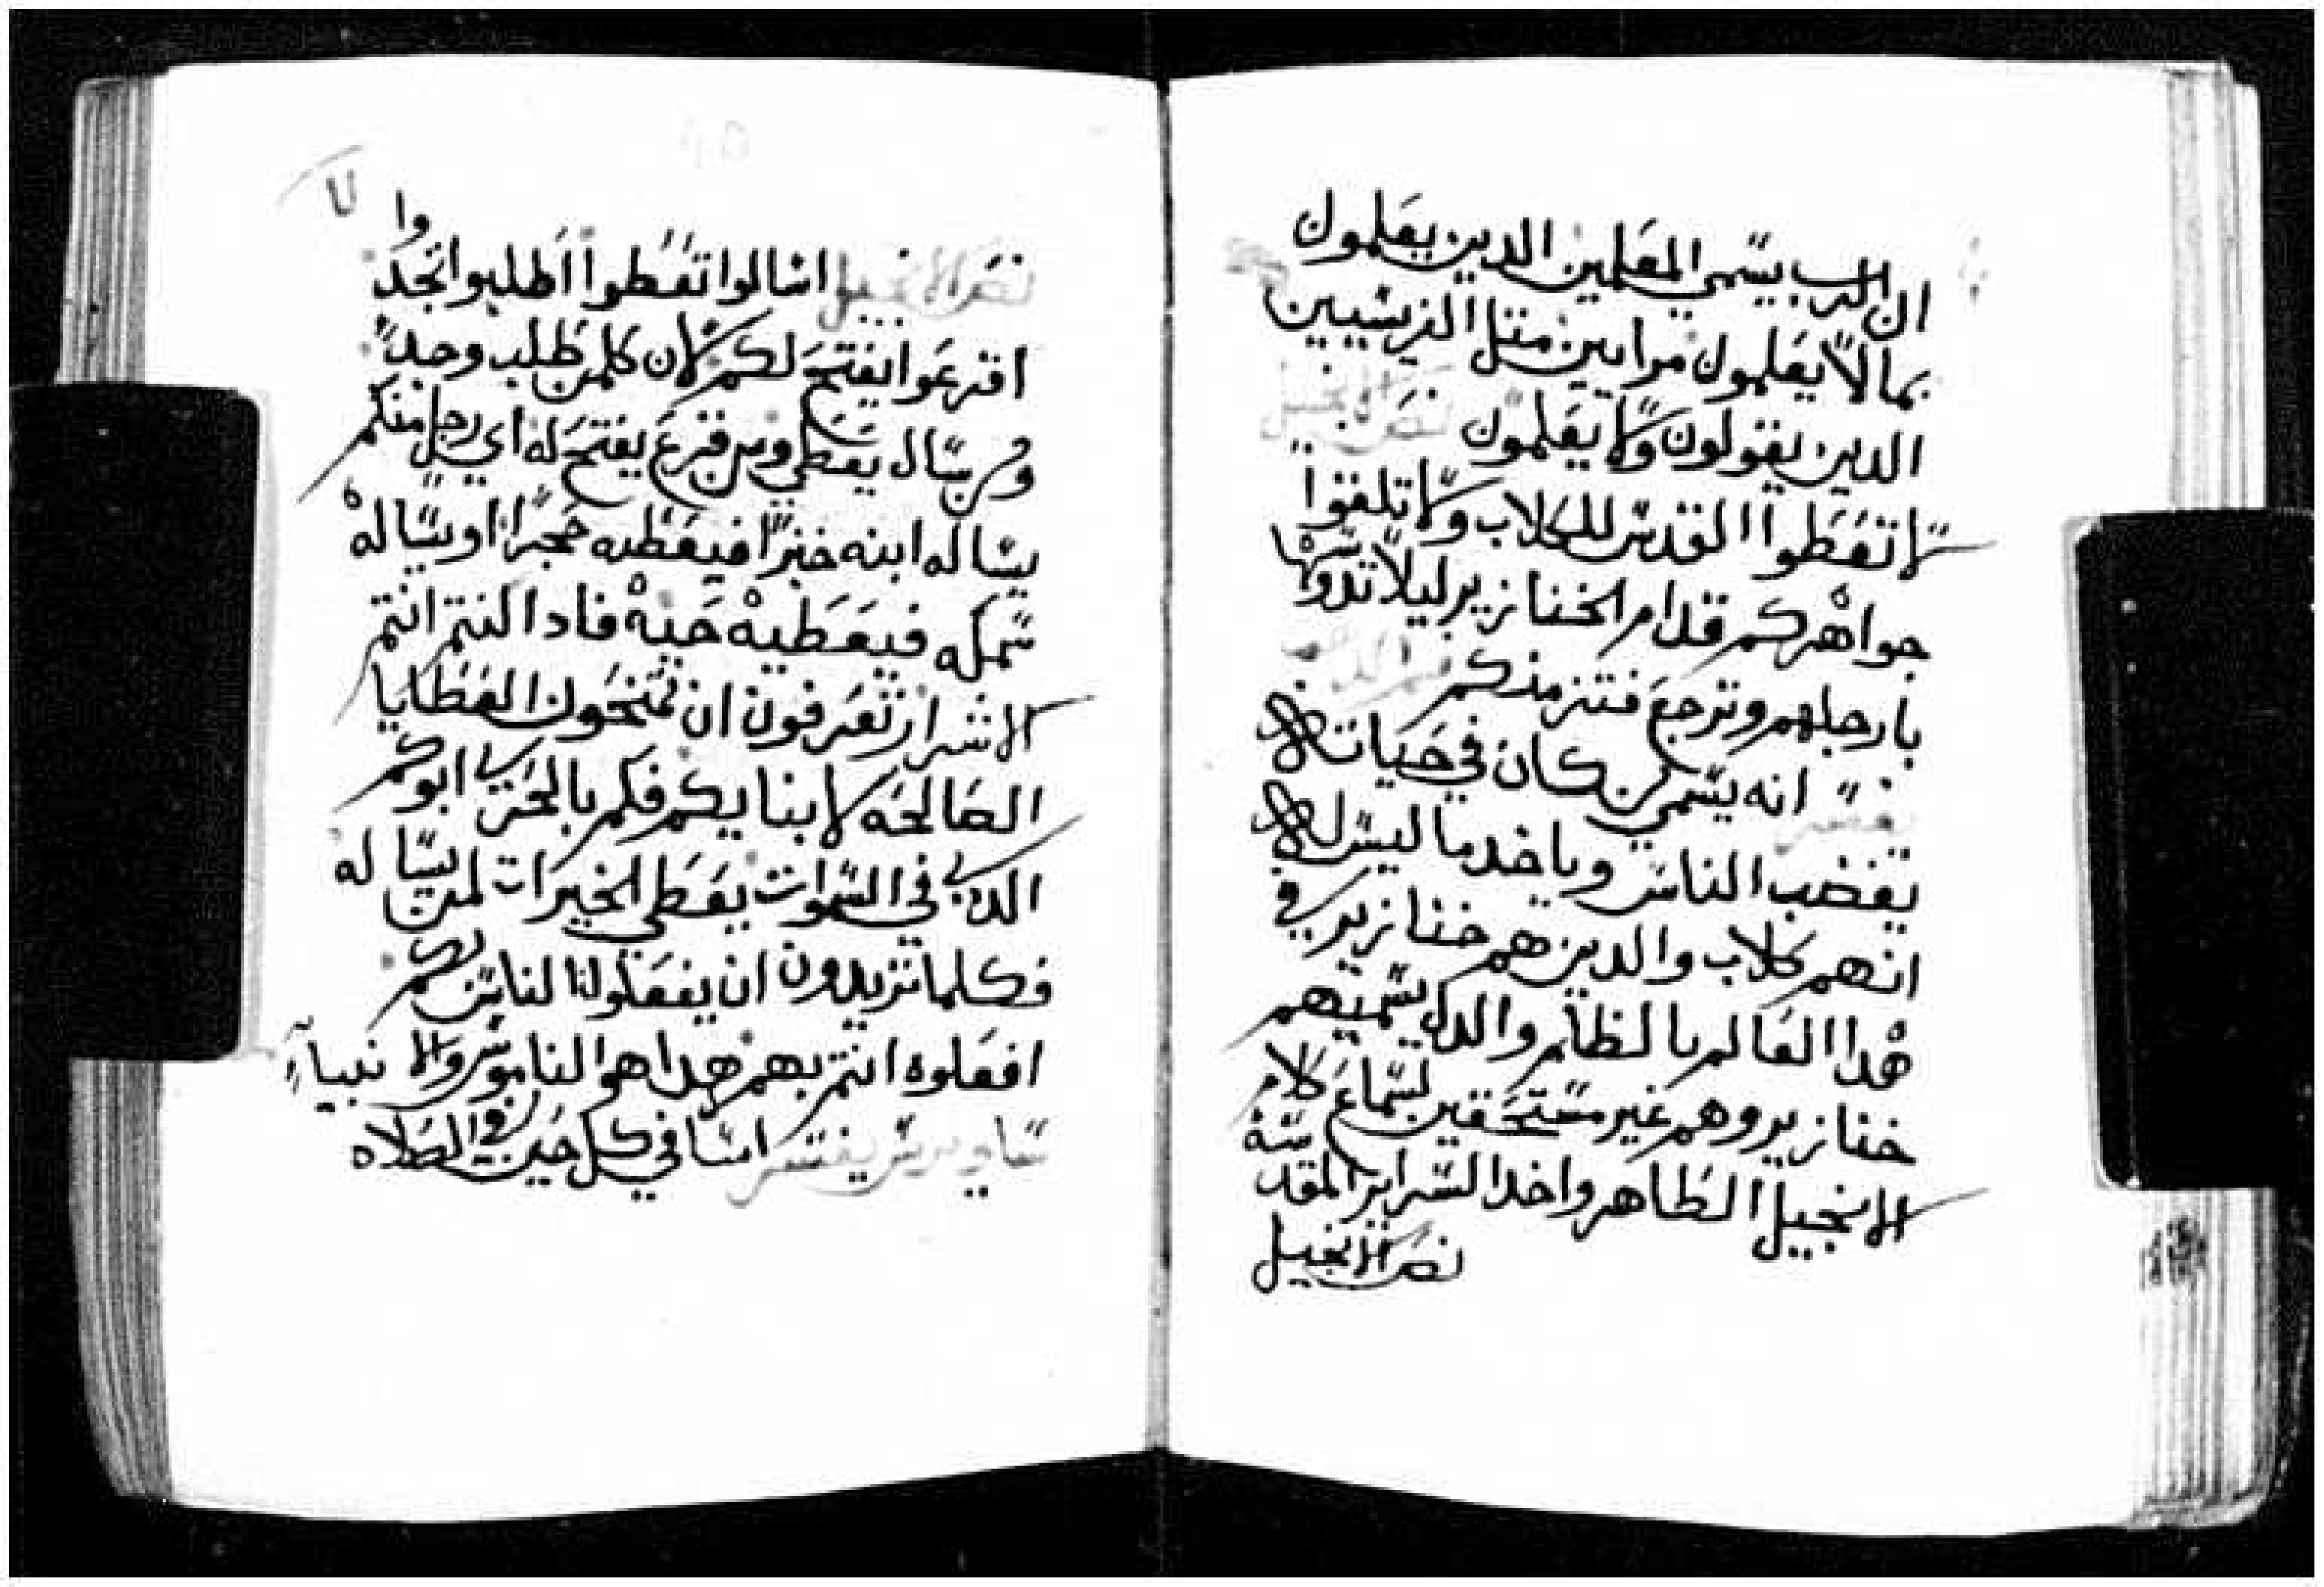 ان الرب يسمي المعلمين الدين يعلمون
بما لا يعلمون مرايين متل الفريسيين
الدين يقولون ولا يعلمون نص الانجيل
لا تعطوا القدس للكلاب ولا تلقوا
جواهركم قدام الخنازير ليلا تدوسها
بارجلهم وترجع فتزمذكم
تفسير انه يسمي من كان في حيات
يغضب الناس وياخد ما ليس له
انهم كلاب والدين هم خنازير في
هدا العالم بالظلم والدي يسميهم
خنازير وهم غير مستحقين لسماع كلام
الانجيل الطاهر واخد السراير المقدسة
نص الانجيل
نص الانجيل اسالوا تعطوا اطلبوا تجدوا
اقرعوا يفتح لكم لان كلمن طلب وجد
ومن سال يعطي ومن قرع يفتح له اي رجل منكم
يساله ابنه خبزا فيعطيه حجرا او يساله
سمكه فيعطيه حيه فادا كنتم انتم
الاشرار تعرفون ان تمنحون العطايا
الصالحه لابنايكم فكم بالحري ابوكم
الدي في السموات يعطي الخيرات لمن يساله
فكلما تريدون ان يفعلوا الناس بكم
افعلوه انتم بهم هدا هو الناموس والانبياء
ساويرس يفسر امسا في كل حين في الصلاه